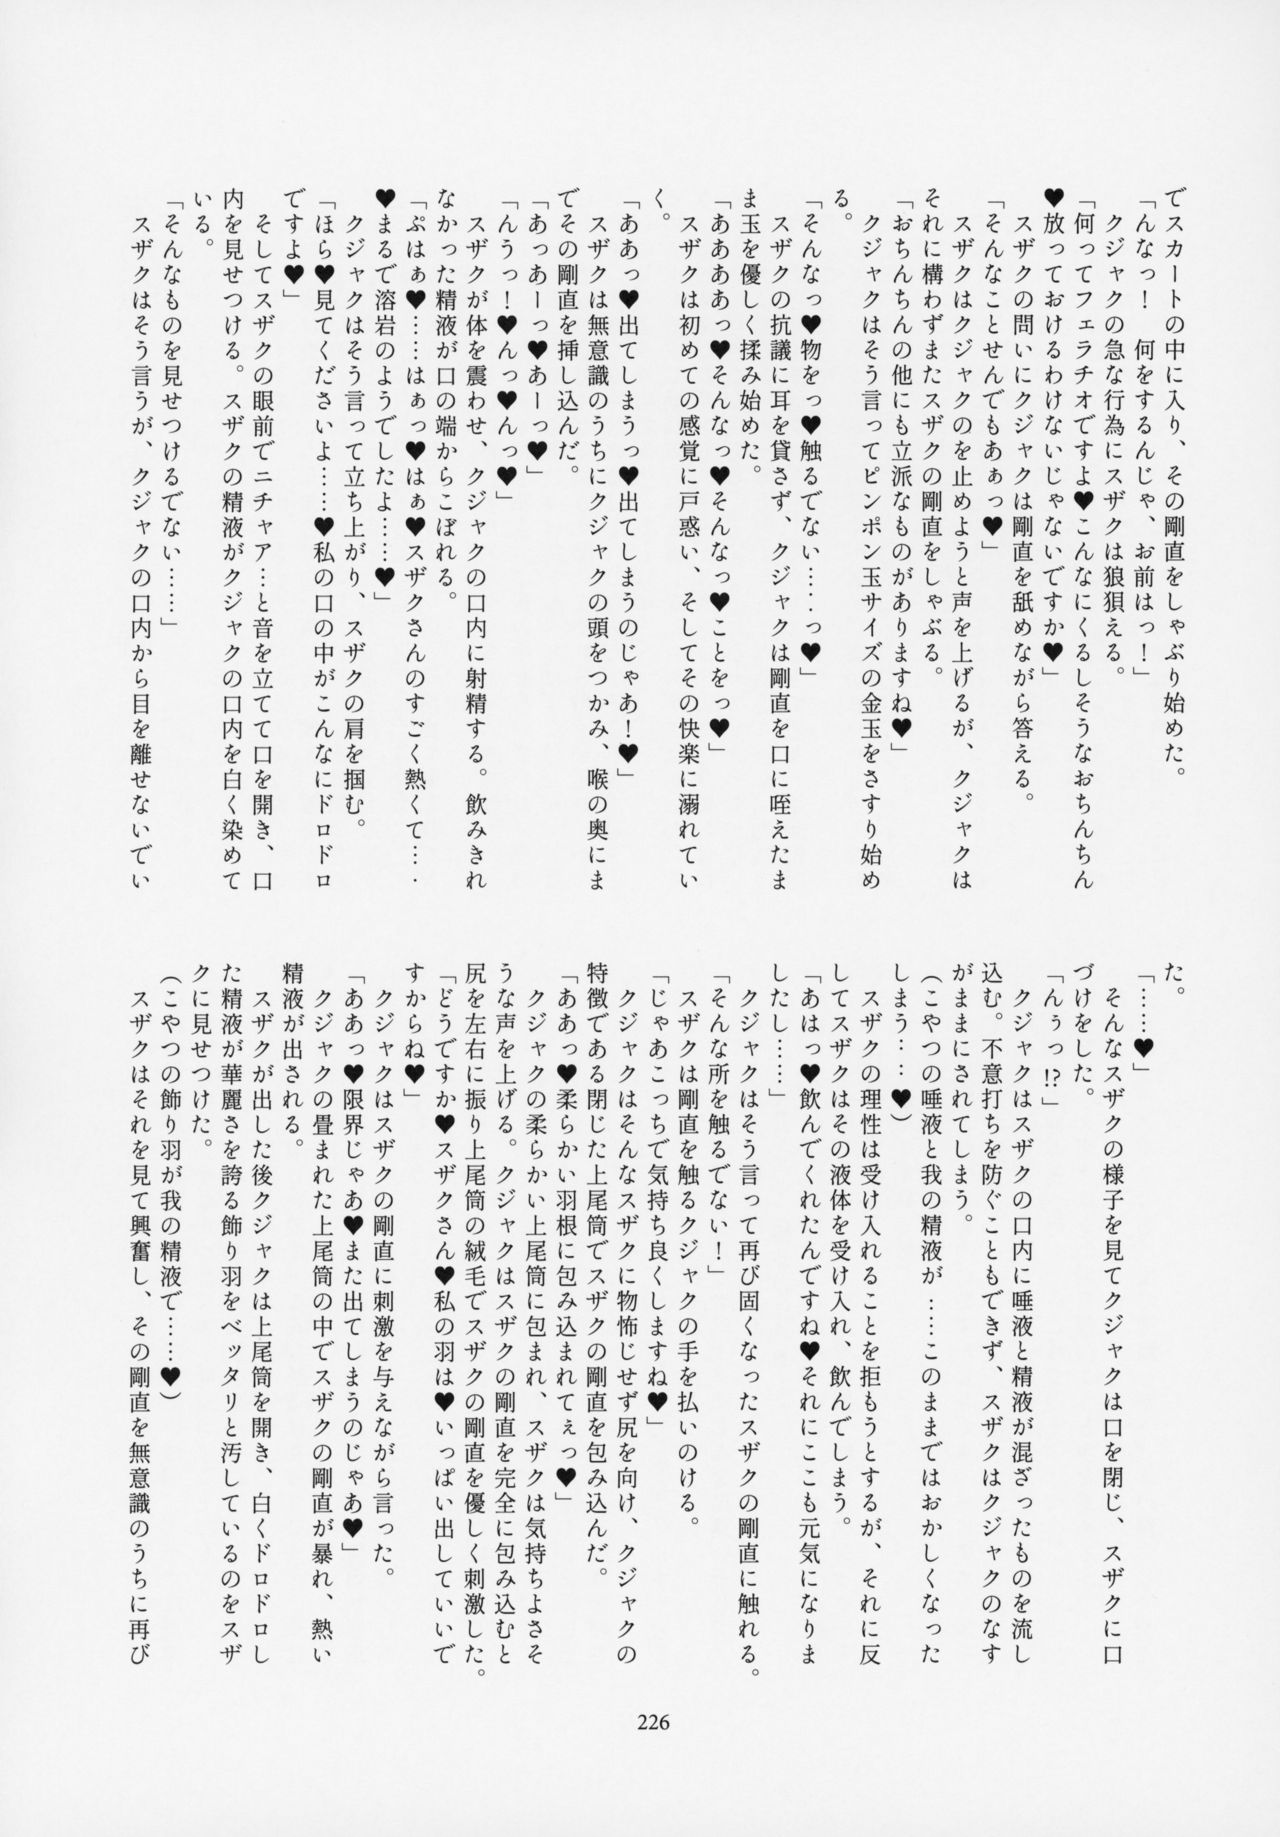 でスカートの中に入り、その剛直をしゃぶり始めた。
「んなっ！　何をするんじゃ、お前はっ！」
クジャクの急な行為にスザクは狼狽える。
「何ってフェラチオですよ♥こんなにくるしそうなおちんちん
♥放っておけるわけないじゃないですか♥」
スザクの問いにクジャクは剛直を舐めながら答える。
「そんなことせんでもあぁっ♥」
スザクはクジャクのを止めようと声を上げるが、クジャクは
それに構わずまたスザクの剛直をしゃぶる。
「おちんちんの他にも立派なものがありますね♥」
クジャクはそう言ってピンポン玉サイズの金玉をさすり始め
る。
「そんなっ♥物をっ♥触るでない……っ♥」
スザクの抗議に耳を貸さず、クジャクは剛直を口に咥えたま
ま玉を優しく揉み始めた。
「ああああっ♥そんなっ♥そんなっ♥ことをっ♥」
スザクは初めての感覚に戸惑い、そしてその快楽に溺れてい
く。
「ああっ♥出てしまうっ♥出てしまうのじゃあ！♥」
スザクは無意識のうちにクジャクの頭をつかみ、喉の奥にま
でその剛直を挿し込んだ。
「あっあーっ♥あーっ♥」
「んうっ！♥んっ♥んっ♥」
スザクが体を震わせ、クジャクの口内に射精する。飲みきれ
なかった精液が口の端からこぼれる。
「ぷはぁ♥……はぁっ♥はぁ♥スザクさんのすごく熱くて…・
♥まるで溶岩のようでしたよ……♥」
クジャクはそう言って立ち上がり、スザクの肩を掴む。
「ほら♥見てくださいよ……♥私の口の中がこんなにドロドロ
ですよ♥」
そしてスザクの眼前でニチャア…と音を立てて口を開き、口
内を見せつける。スザクの精液がクジャクの口内を白く染めて
いる。
「そんなものを見せつけるでない……」
スザクはそう言うが、クジャクの口内から目を離せないでい
た。
「……♥」
そんなスザクの様子を見てクジャクは口を閉じ、スザクに口
づけをした。
「んぅっ⁉」
クジャクはスザクの口内に唾液と精液が混ざったものを流し
込む。不意打ちを防ぐこともできず、スザクはクジャクのなす
がままにされてしまう。
（こやつの唾液と我の精液が……このままではおかしくなった
しまう……♥）
スザクの理性は受け入れることを拒もうとするが、それに反
してスザクはその液体を受け入れ、飲んでしまう。
「あはっ♥飲んでくれたんですね♥それにここも元気になりま
したし……」
クジャクはそう言って再び固くなったスザクの剛直に触れる。
「そんな所を触るでない！」
スザクは剛直を触るクジャクの手を払いのける。
「じゃあこっちで気持ち良くしますね♥」
クジャクはそんなスザクに物怖じせず尻を向け、クジャクの
特徴である閉じた上尾筒でスザクの剛直を包み込んだ。
「ああっ♥柔らかい羽根に包み込まれてぇっ♥」
クジャクの柔らかい上尾筒に包まれ、スザクは気持ちよさそ
うな声を上げる。クジャクはスザクの剛直を完全に包み込むと
尻を左右に振り上尾筒の絨毛でスザクの剛直を優しく刺激した。
「どうですか♥スザクさん♥私の羽は♥いっぱい出していいで
すからね♥」
クジャクはスザクの剛直に刺激を与えながら言った。
「ああっ♥限界じゃあ♥また出てしまうのじゃあ♥」
クジャクの畳まれた上尾筒の中でスザクの剛直が暴れ、熱い
精液が出される。
スザクが出した後クジャクは上尾筒を開き、白くドロドロし
た精液が華麗さを誇る飾り羽をベッタリと汚しているのをスザ
クに見せつけた。
（こやつの飾り羽が我の精液で……♥）
スザクはそれを見て興奮し、その剛直を無意識のうちに再び
226